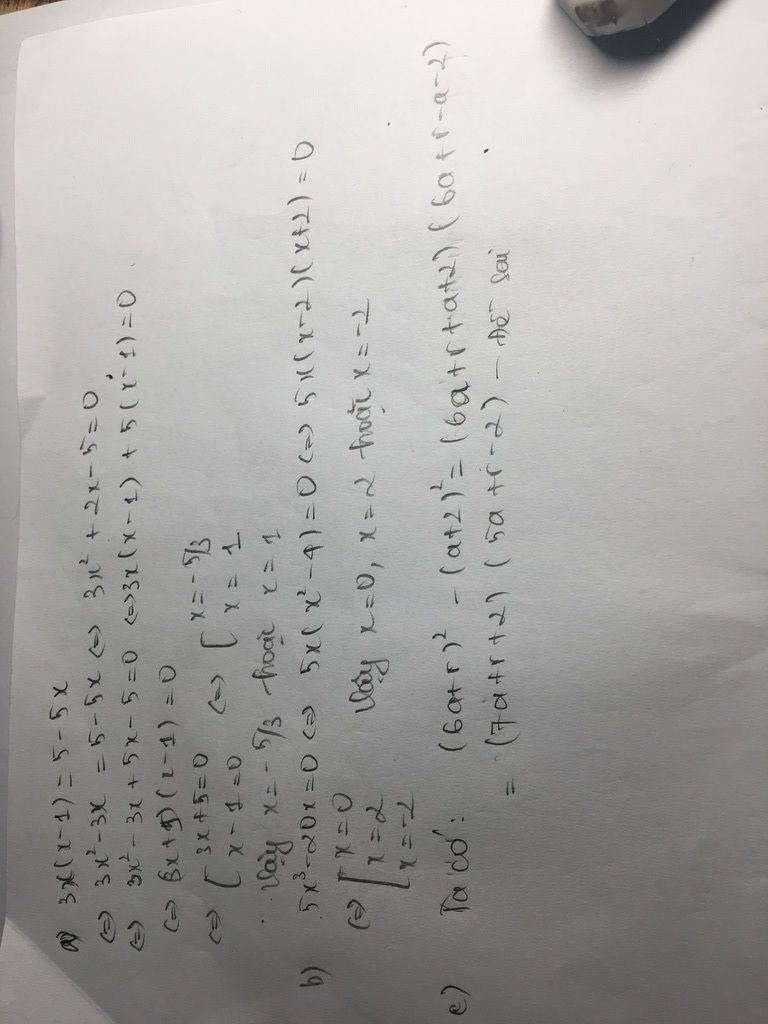 a) 3x(x-1) = 5-5x
⇔ 3x² - 3x = 5-5x ⇔ 3x² + 2x - 5 = 0
⇔ 3x² - 3x + 5x - 5 = 0 ⇔ 3x(x-1) + 5(x-1) = 0
⇔ (3x+5)(x-1) = 0
⇔ [ 3x+5=0 ⇔ [ x = -5/3
x-1=0 x = 1
Vậy x = -5/3 hoặc x = 1
b) 5x³ - 20x = 0 ⇔ 5x(x²-4) = 0 ⇔ 5x(x-2)(x+2) = 0
⇔ [ x=0
x=2 Vậy x=0, x=2 hoặc x=-2
x=-2
c) Ta có: (6a+r)² - (a+2)² = (6a+r+a+2)(6a+r-a-2)
= (7a+r+2)(5a+r-2) - Đề sai